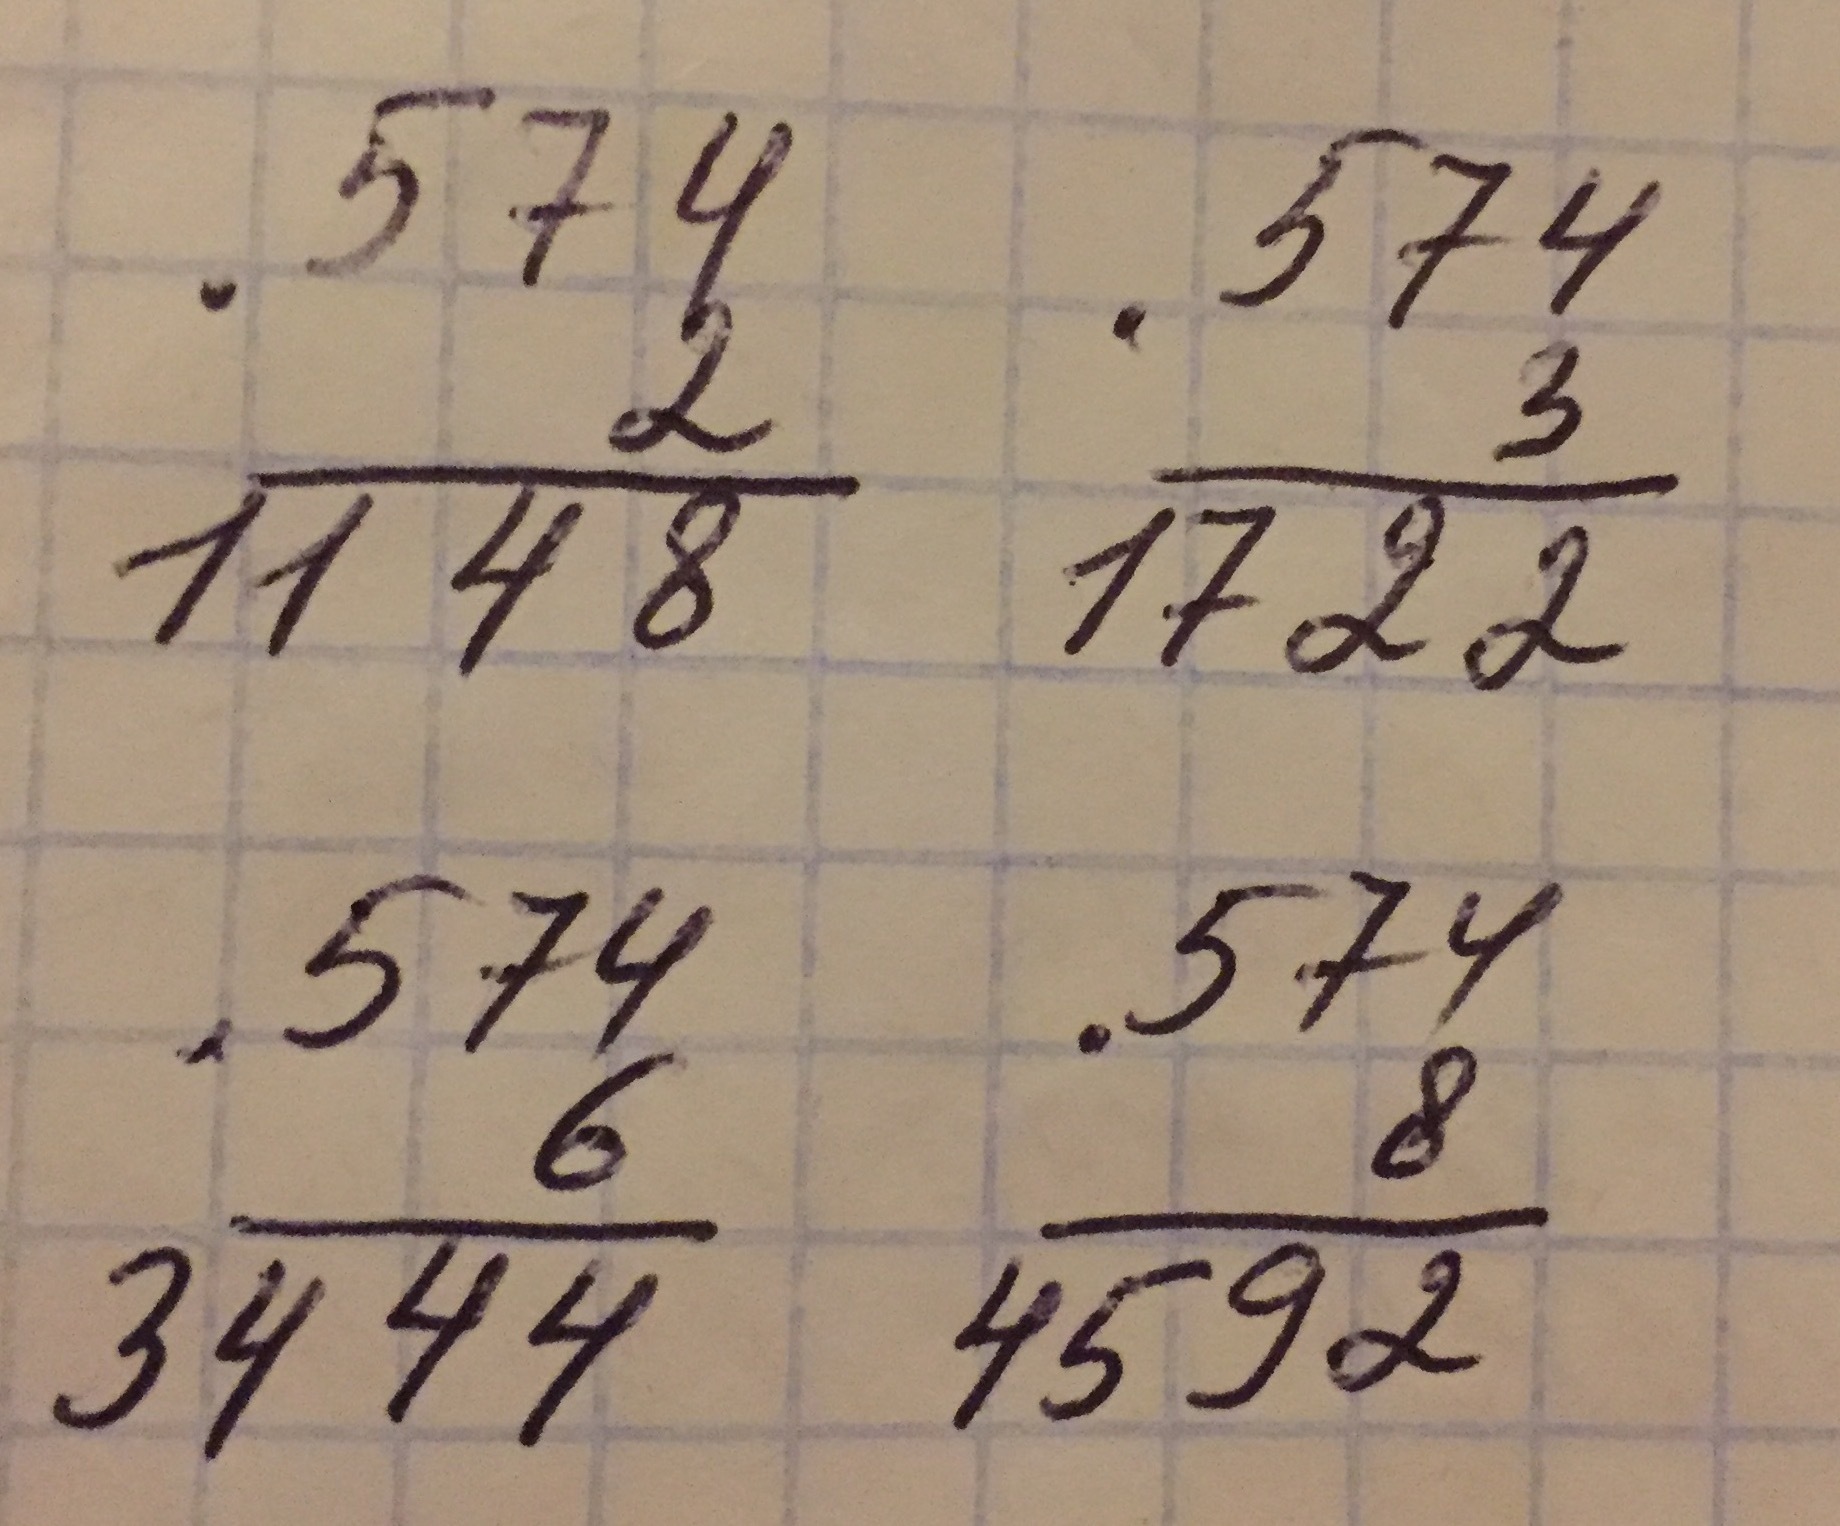 574
. 2
1148
574
. 3
1722
574
. 6
3444
574
. 8
4592